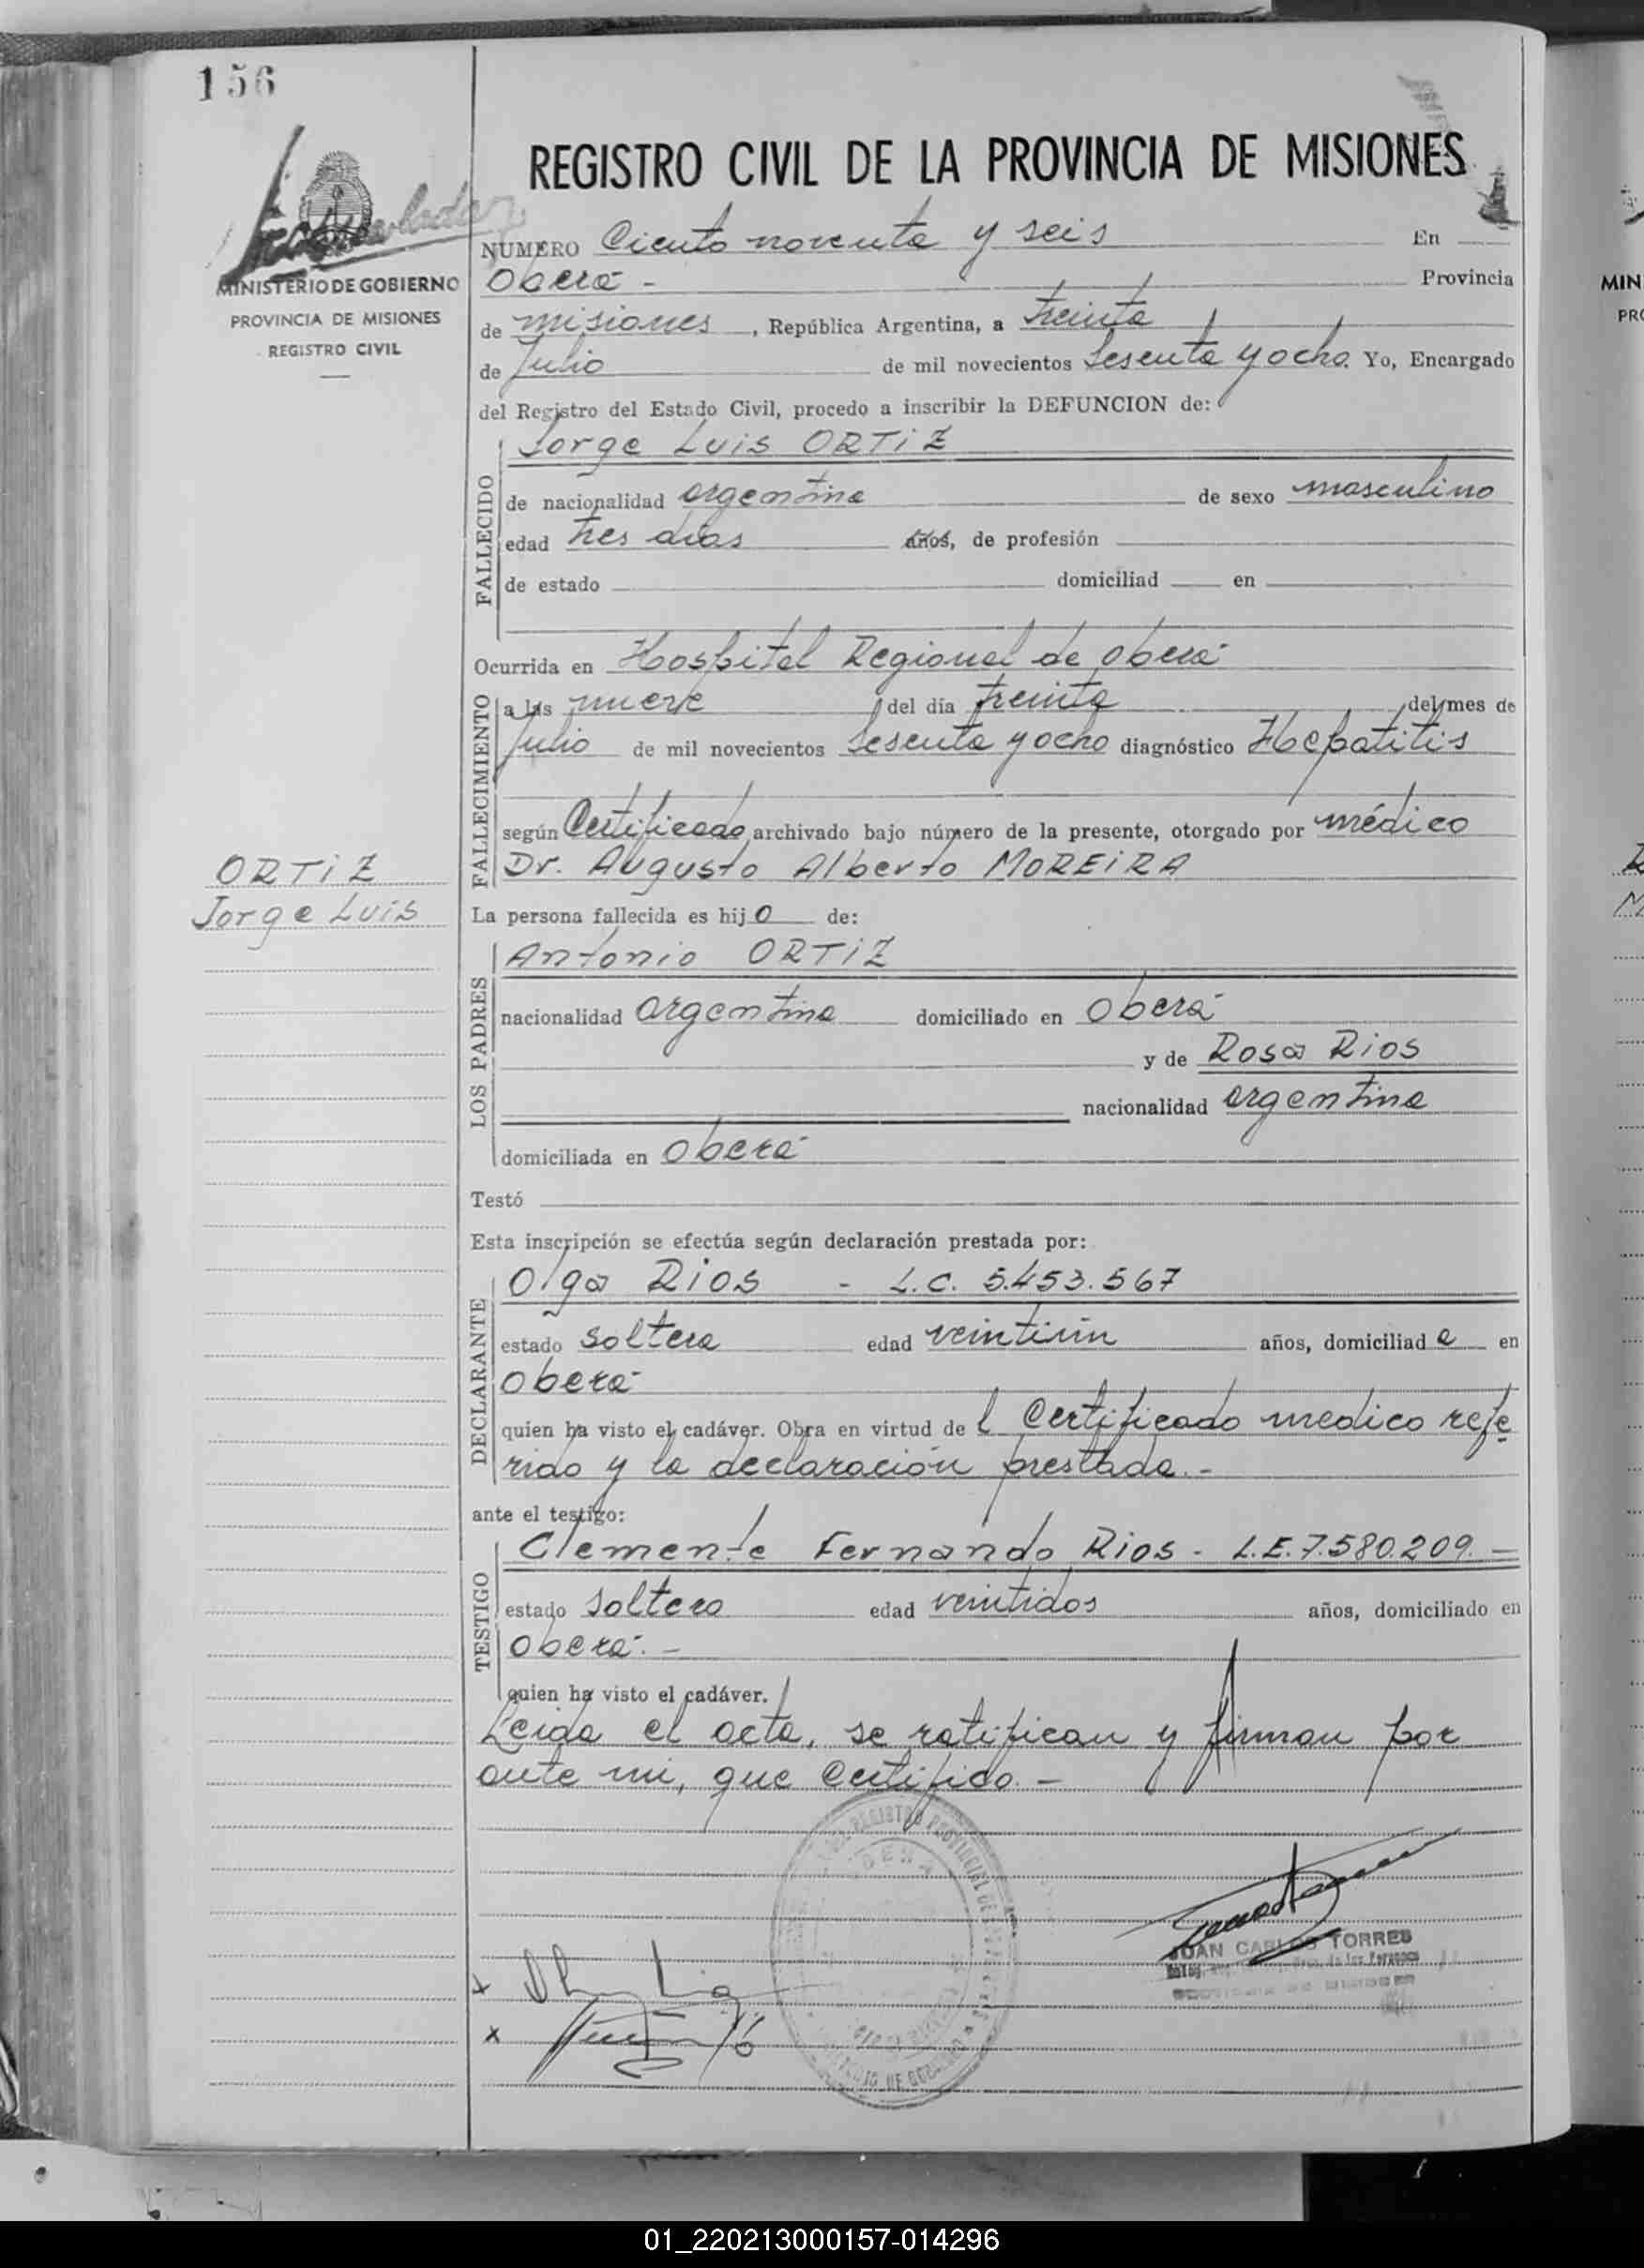 156
REGISTRO CIVIL DE LA PROVINCIA DE MISIONES
MINISTERIO DE GOBIERNO
PROVINCIA DE MISIONES
REGISTRO CIVIL
NUMERO Ciento noventa y seis En
Oberá - Provincia
de misiones, República Argentina, a treinta
de Julio de mil novecientos sesenta y ocho. Yo, Encargado
del Registro del Estado Civil, procedo a inscribir la DEFUNCION de:
Jorge Luis ORTiZ
FALLECIDO
de nacionalidad argentina de sexo masculino
edad tres días años, de profesión
de estado domiciliad en
Ocurrida en Hospital Regional de Oberá
FALLECIMIENTO
a las nueve del día treinta del mes de
Julio de mil novecientos sesenta y ocho diagnóstico Hepatitis
según Certificado archivado bajo número de la presente, otorgado por médico
Dr. Augusto Alberto MOREiRA
ORTiZ
Jorge Luis
La persona fallecida es hijo de:
LOS PADRES
Antonio ORTiZ
nacionalidad argentina domiciliado en Oberá
y de Rosa Rios
nacionalidad argentina
domiciliada en Oberá
Testó
Esta inscripción se efectúa según declaración prestada por:
DECLARANTE
Olga Rios - L.C. 5.453.567
estado soltera edad veintiún años, domiciliada en
Oberá
quien ha visto el cadáver. Obra en virtud del Certificado medico refe
rido y la declaración prestada.-
ante el testigo:
TESTIGO
Clemente Fernando Rios - L.E. 7.580.209. -
estado soltero edad veintidos años, domiciliado en
Oberá. -
quien ha visto el cadáver.
Leida el acta, se ratifican y firman por
ante mi, que certifico. -
JUAN CARLOS TORRES
01_220213000157-014296